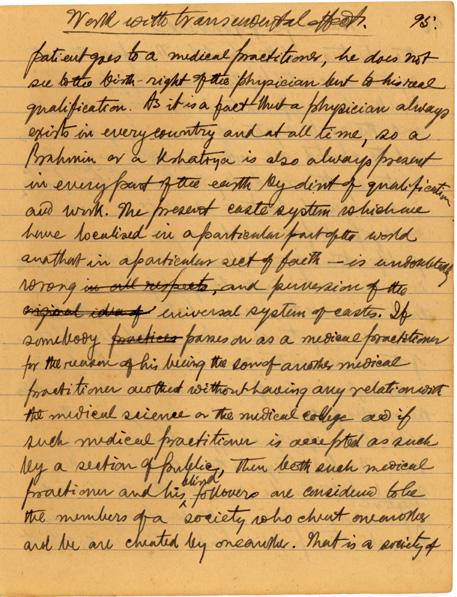 Work with transcendental effect. 95.
patient goes to a medical practitioner, he does not
see to the birth-right of the physician but to his real
qualification. As it is a fact that a physician always
exists in every country and at all time, so a
Brahmin or a Kshatrya is also always present
in every part of the earth by dint of qualification
and work. The present caste system which we
have localised in a particular part of the world
and that in a particular sect of faith — is undoubtedly
wrong in all respects, and perversion of the
original idea of universal system of castes. If
somebody practices passes on as a medical practitioner
for the reason of his being the son of another medical
practitioner and that without having any relation with
the medical science or the medical college and if
such medical practitioner is accepted as such
by a section of public, then both such medical
practioner and his blind followers are considered to be
the members of a society who cheat one another
and be are cheated by one another. That is a society of